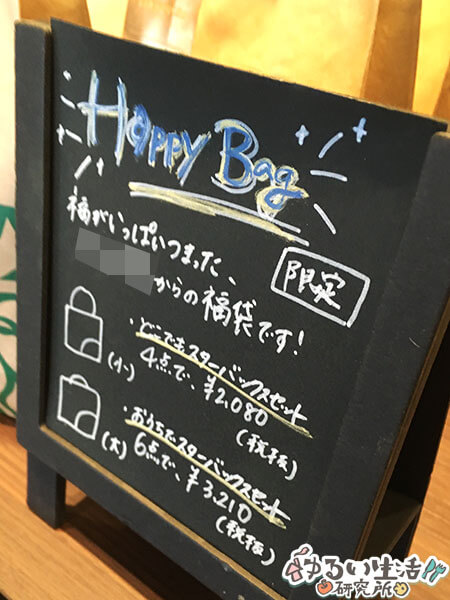 Happy Bag
福がいっぱいつまった、
からの福袋です！
限定
・どこでもスターバックスセット
(小) 4点で、¥2,080
(税抜)
・おうちでスターバックスセット
(大) 6点で、¥3,210
(税抜)
ゆるい生活
研究所